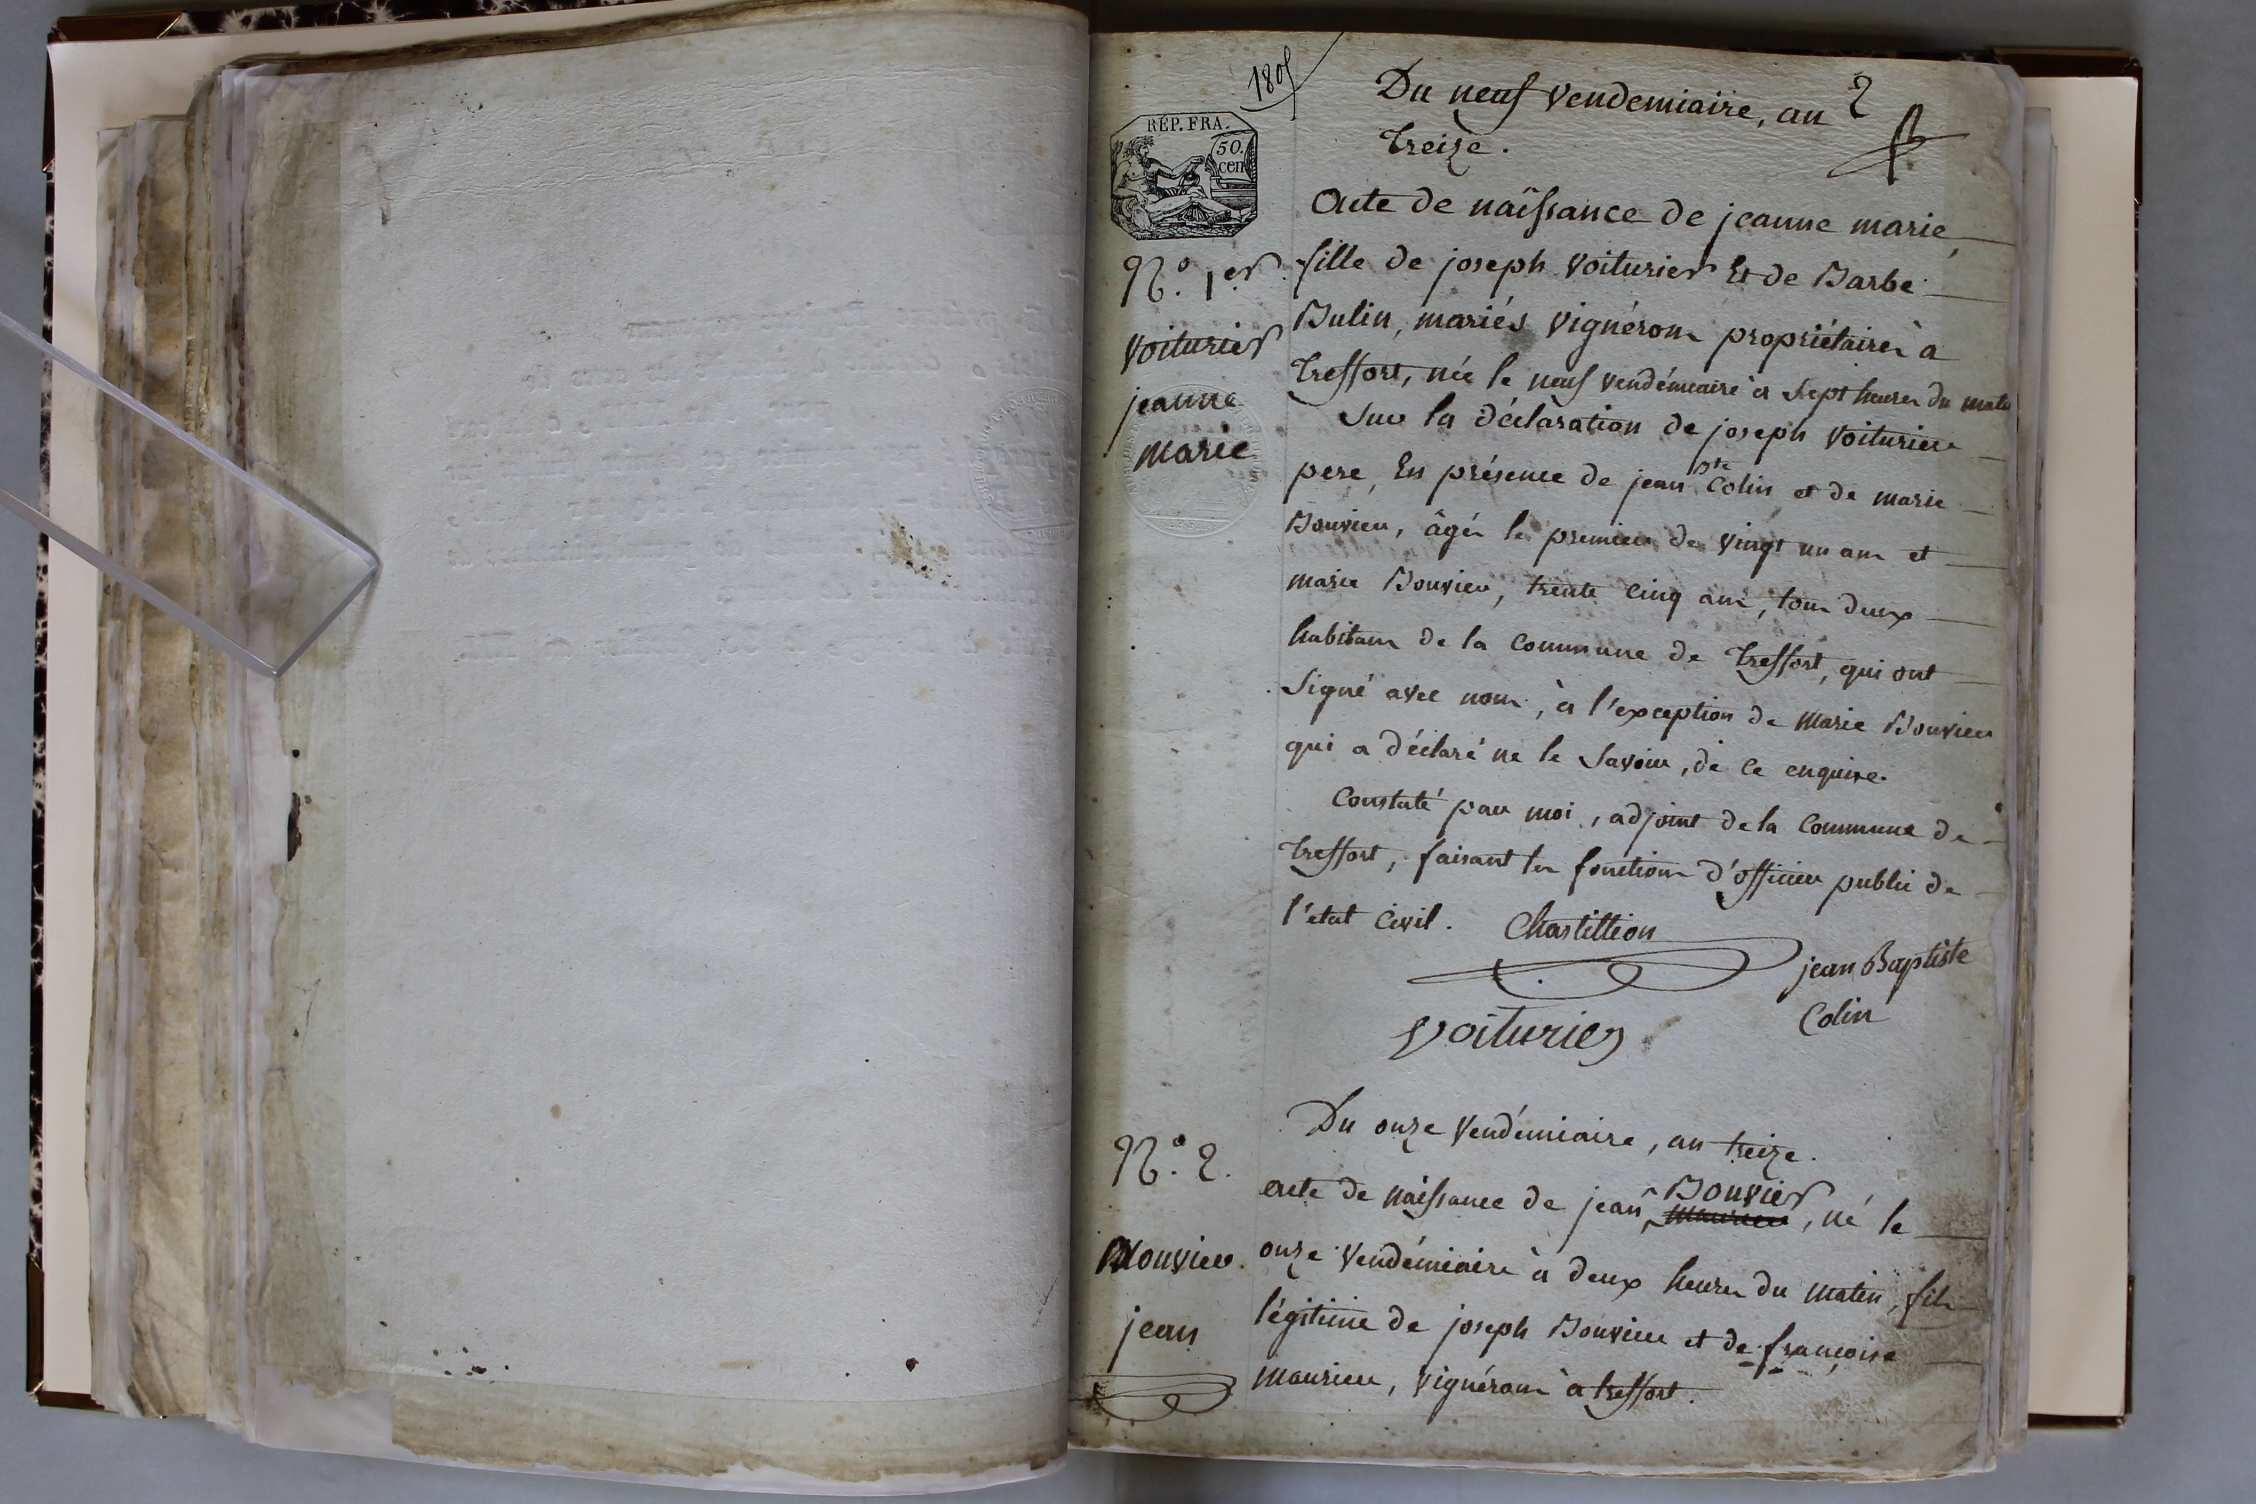 1805
2
RÉP. FRA.
50.
cen
Du neuf vendemiaire, an
treize.
Acte de naissance de jeanne marie,
N.o 1.er
fille de joseph voiturier Et de Barbe
Bulin, mariés vignérons propriétaires à
voiturier
treffort, née le neuf vendémiaire à sept heures du matin
jeanne
marie
sur la déclaration de joseph voiturier
pere, En présence de jean Bte Colin et de marie
Bouvier, âgés le premier de vingt un ans et
marie Bouvier, trente cinq ans, tous deux
habitans de la commune de treffort, qui ont
signé avec nous, à l'exception de marie Bouvier
qui a déclaré ne le savoir, de ce enquise.
Constaté par moi, adjoint de la commune de
treffort, faisant les fonctions d'officier public de
l'etat civil. Chastillion
jean Baptiste
Colin
voiturier
Du onze vendémiaire, an treize.
N.o 2.
acte de naissance de jean Bouvier, né le
Bouvier.
onze vendémiaire à deux heures du matin, fils
légitime de joseph Bouvier et de françoise
jean
maurier, vignérons à treffort.